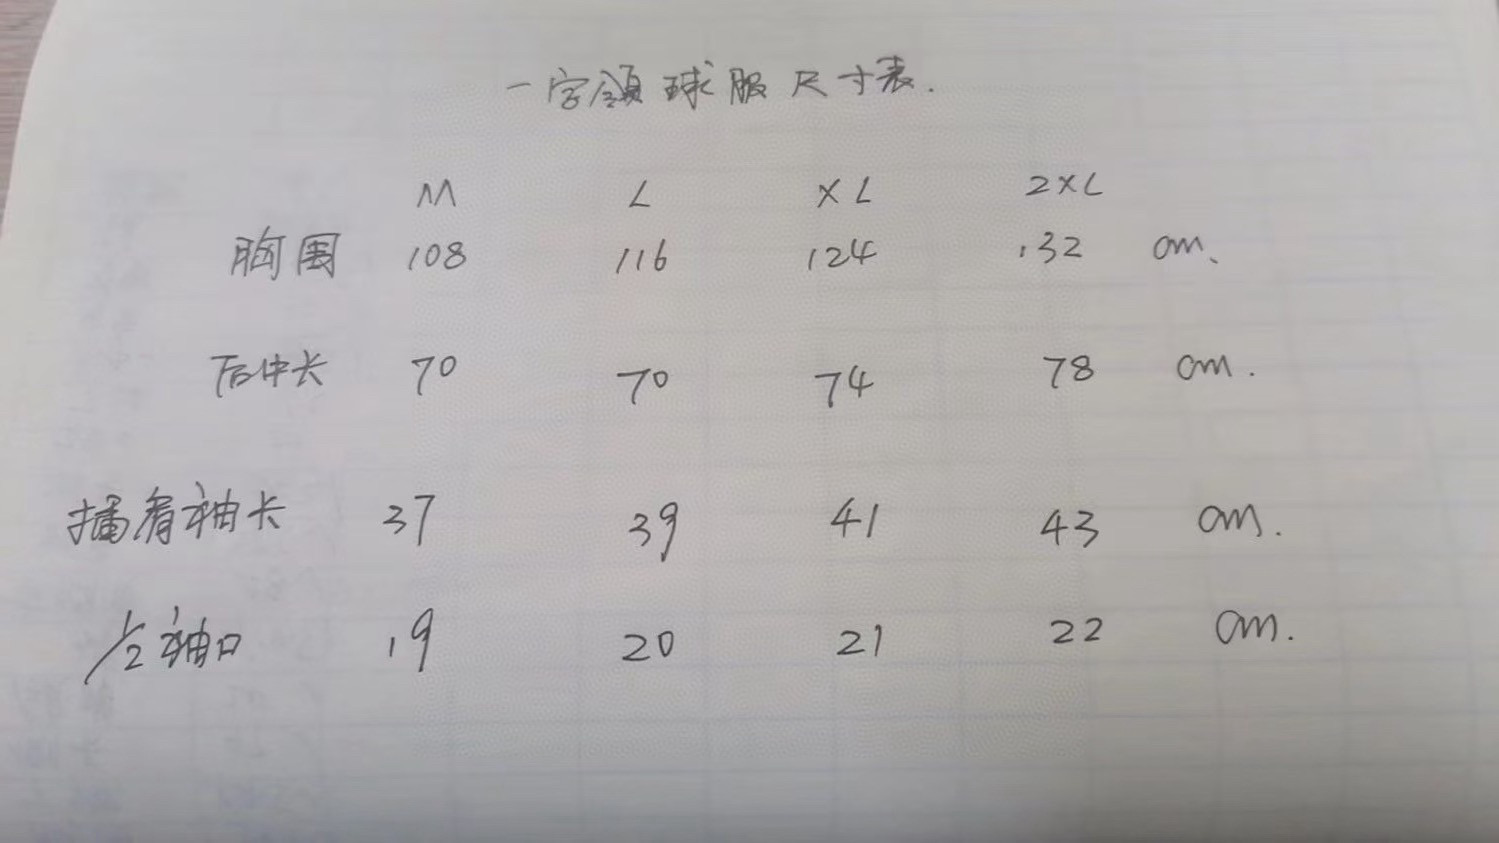 一字領球服尺寸表.
M L XL 2XL
胸围 108 116 124 132 cm、
后中长 70 70 74 78 cm.
插肩袖长 37 39 41 43 cm.
1/2袖口 19 20 21 22 cm.